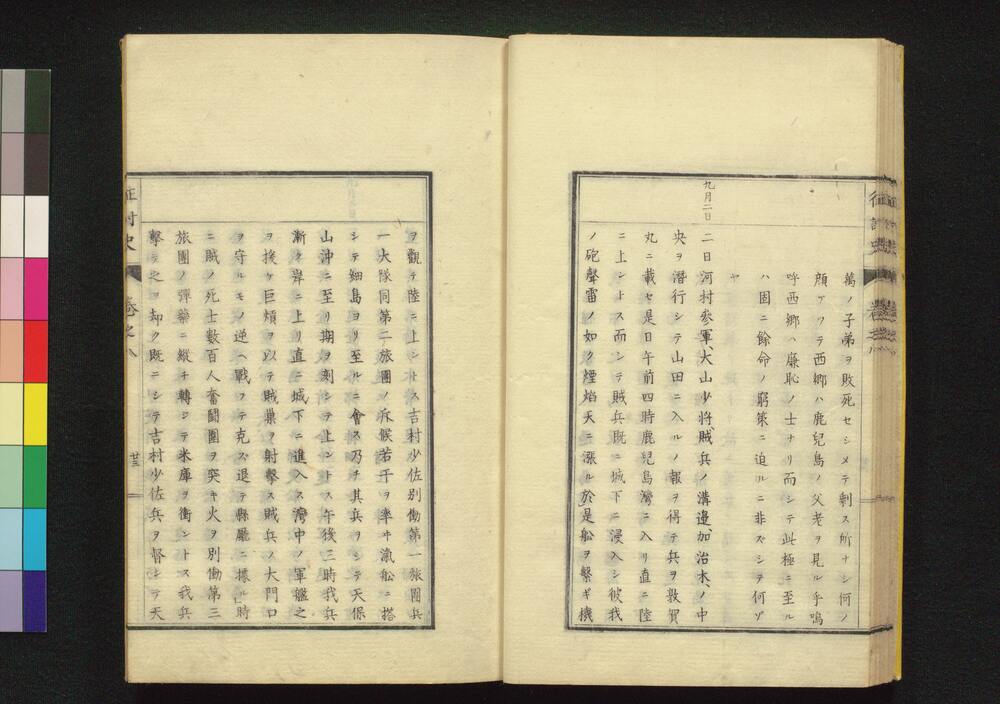 萬ノ子弟ヲ敗死セシメテ剰ス所ナシ何ノ
顔アツテ西郷ハ鹿兒島ノ父老ヲ見ル乎嗚
呼西郷ハ廉恥ノ士ナリ而シテ此極ニ至ル
ハ固ニ餘命ノ窮策ニ迫ルニ非ズシテ何ゾ
ヤ
九月二日
二日河村參軍、大山少将、賊兵ノ溝邉、加治木、ノ中
央ヲ潜行シテ山田ニ入ルノ報ヲ得テ兵ヲ敦賀
丸ニ載セ是日午前四時鹿兒島灣ニ入リ直ニ陸
ニ上ントス而シテ賊兵既ニ城下ニ浸入シ彼我
ノ砲聲雷ノ如ク煙焰天ニ漲ル於是船ヲ繋ギ機
ヲ觀テ陸ニ上ントス吉村少佐別働第一旅團兵
一大隊同第二旅團ノ斥候若干ヲ率ヰ滊舩ニ搭
シテ細島ヨリ至ルニ會ス乃チ其兵ヲシテ天保
山沖ニ至リ期ヲ刻シテ上ントス午後三時我兵
漸ク岸ニ上リ直ニ城下ニ進入ス灣中ノ軍艦之
ヲ挨ケ巨熕ヲ以テ賊巣ヲ射撃ス賊兵ノ大門口
ヲ守ルモノ逆ヘ戰フテ克ズ退テ縣廰ニ據ル時
ニ賊ノ死士數百人奮鬪圍ヲ突キ火ヲ別働第三
旅團ノ彈藥ニ縱チ轉シテ米庫ヲ衝ントス我兵
擊テ之ヲ却ク既ニシテ吉村少佐兵ヲ督シテ天
征討史 卷之八
廿三